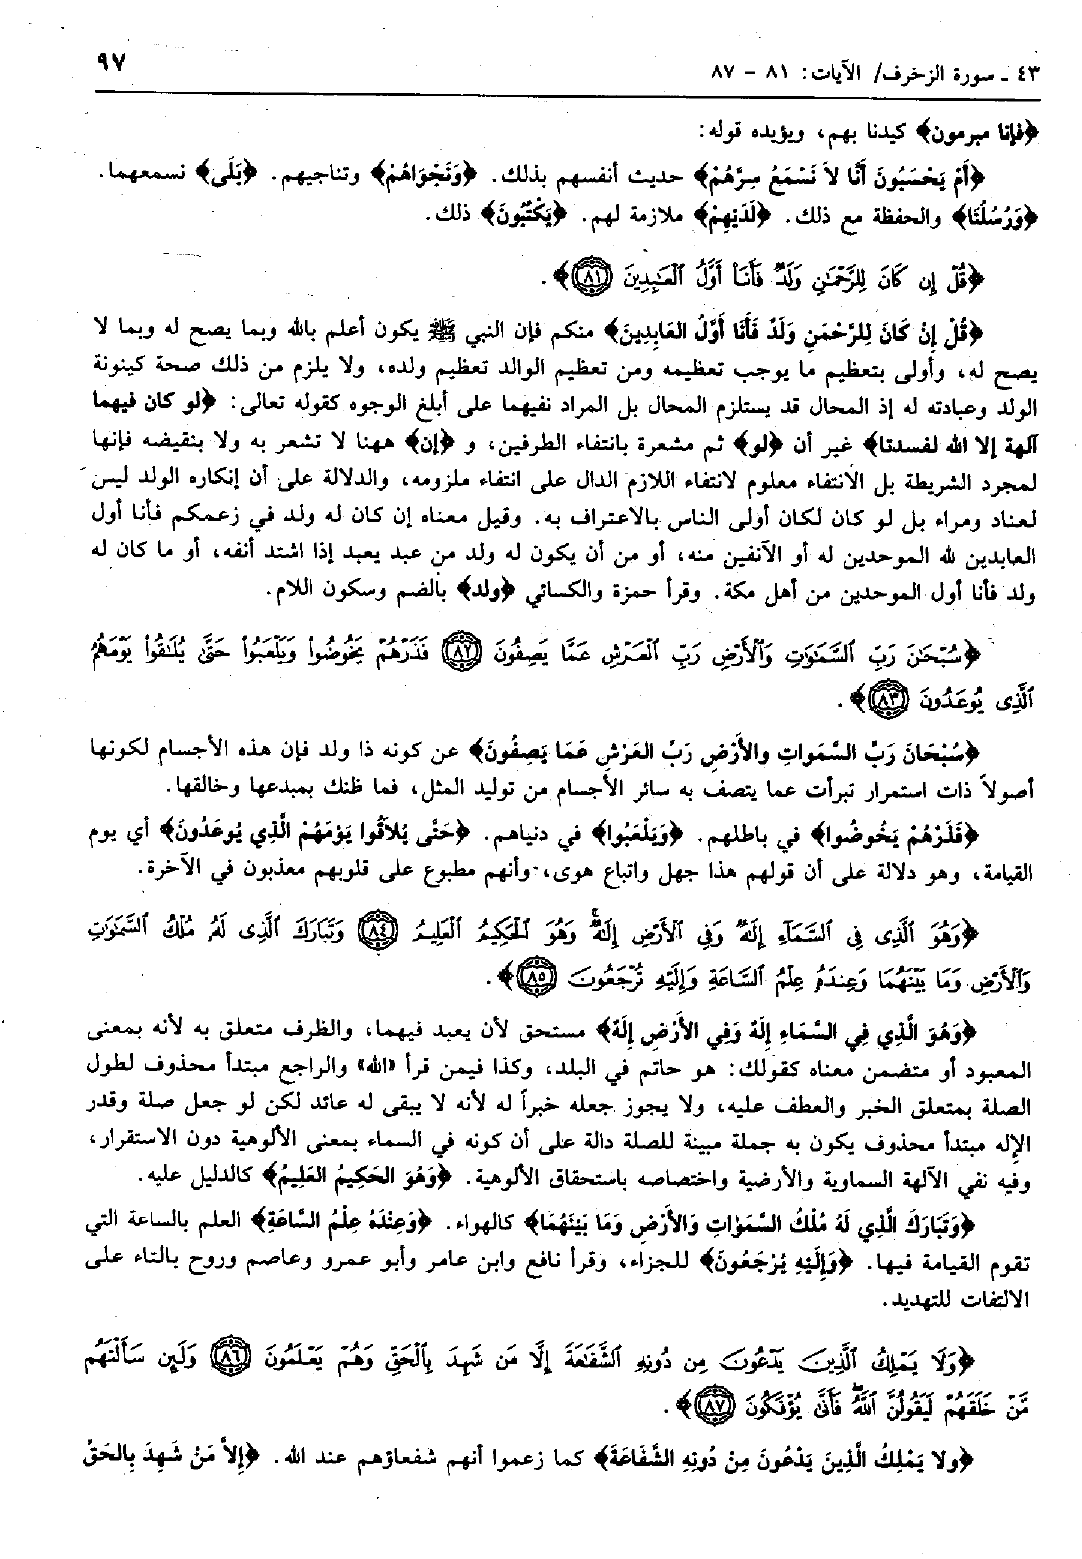 ٤٣ ـ سورة الزخرف/ الآيات: ٨١ – ٨٧
٩٧
﴿فإنا مبرمون﴾ كيدنا بهم، ويؤيده قوله:
﴿أَمْ يَحْسَبُونَ أَنَّا لاَ نَسْمَعُ سِرَّهُمْ﴾ حديث أنفسهم بذلك. ﴿وَنَجْوَاهُمْ﴾ وتناجيهم. ﴿بَلَى﴾ نسمعهما.
﴿وَرُسُلُنَا﴾ والحفظة مع ذلك. ﴿لَدَيْهِمْ﴾ ملازمة لهم. ﴿يَكْتُبُونَ﴾ ذلك.
﴿قُلْ إِن كَانَ لِلرَّحْمَٰنِ وَلَدٌ فَأَنَا۠ أَوَّلُ ٱلْعَٰبِدِينَ ٨١﴾.
﴿قُلْ إِنْ كَانَ لِلرَّحْمَنِ وَلَدٌ فَأَنَا أَوَّلُ العَابِدِينَ﴾ منكم فإن النبي ﷺ يكون أعلم بالله وبما يصح له وبما لا
يصح له، وأولى بتعظيم ما يوجب تعظيمه ومن تعظيم الوالد تعظيم ولده، ولا يلزم من ذلك صحة كينونة
الولد وعبادته له إذ المحال قد يستلزم المحال بل المراد نفيهما على أبلغ الوجوه كقوله تعالى: ﴿لو كان فيهما
آلهة إلا الله لفسدتا﴾ غير أن ﴿لو﴾ ثم مشعرة بانتفاء الطرفين، و ﴿إن﴾ ههنا لا تشعر به ولا بنقيضه فإنها
لمجرد الشريطة بل الانتفاء معلوم لانتفاء اللازم الدال على انتفاء ملزومه، والدلالة على أن إنكاره الولد ليس
لعناد ومراء بل لو كان لكان أولى الناس بالاعتراف به. وقيل معناه إن كان له ولد في زعمكم فأنا أول
العابدين لله الموحدين له أو الآنفين منه، أو من أن يكون له ولد من عبد يعبد إذا اشتد أنفه، أو ما كان له
ولد فأنا أول الموحدين من أهل مكة. وقرأ حمزة والكسائي ﴿ولد﴾ بالضم وسكون اللام.
﴿سُبْحَٰنَ رَبِّ ٱلسَّمَٰوَٰتِ وَٱلْأَرْضِ رَبِّ ٱلْعَرْشِ عَمَّا يَصِفُونَ ٨٢ فَذَرْهُمْ يَخُوضُوا۟ وَيَلْعَبُوا۟ حَتَّىٰ يُلَٰقُوا۟ يَوْمَهُمُ
ٱلَّذِى يُوعَدُونَ ٨٣﴾.
﴿سُبْحَانَ رَبِّ السَّمَوَاتِ والأَرْضِ رَبِّ العَرْشِ عَمَّا يَصِفُونَ﴾ عن كونه ذا ولد فإن هذه الأجسام لكونها
أصولاً ذات استمرار تبرأت عما يتصف به سائر الأجسام من توليد المثل، فما ظنك بمبدعها وخالقها.
﴿فَذَرْهُمْ يَخُوضُوا﴾ في باطلهم. ﴿وَيَلْعَبُوا﴾ في دنياهم. ﴿حَتَّى يُلاَقُوا يَوْمَهُمُ الَّذِي يُوعَدُونَ﴾ أي يوم
القيامة، وهو دلالة على أن قولهم هذا جهل واتباع هوى، وأنهم مطبوع على قلوبهم معذبون في الآخرة.
﴿وَهُوَ ٱلَّذِى فِى ٱلسَّمَآءِ إِلَٰهٌ وَفِى ٱلْأَرْضِ إِلَٰهٌ وَهُوَ ٱلْحَكِيمُ ٱلْعَلِيمُ ٨٤ وَتَبَارَكَ ٱلَّذِى لَهُۥ مُلْكُ ٱلسَّمَٰوَٰتِ
وَٱلْأَرْضِ وَمَا بَيْنَهُمَا وَعِندَهُۥ عِلْمُ ٱلسَّاعَةِ وَإِلَيْهِ تُرْجَعُونَ ٨٥﴾.
﴿وَهُوَ الَّذِي فِي السَّمَاءِ إِلَهٌ وَفِي الأَرْضِ إِلَهٌ﴾ مستحق لأن يعبد فيهما، والظرف متعلق به لأنه بمعنى
المعبود أو متضمن معناه كقولك: هو حاتم في البلد، وكذا فيمن قرأ «الله» والراجع مبتدأ محذوف لطول
الصلة بمتعلق الخبر والعطف عليه، ولا يجوز جعله خبراً له لأنه لا يبقى له عائد لكن لو جعل صلة وقدر
الإِله مبتدأ محذوف يكون به جملة مبينة للصلة دالة على أن كونه في السماء بمعنى الألوهية دون الاستقرار،
وفيه نفي الآلهة السماوية والأرضية واختصاصه باستحقاق الألوهية. ﴿وَهُوَ الحَكِيمُ العَلِيمُ﴾ كالدليل عليه.
﴿وَتَبَارَكَ الَّذِي لَهُ مُلْكُ السَّمَوَاتِ وَالأَرْضِ وَمَا بَيْنَهُمَا﴾ كالهواء. ﴿وَعِنْدَهُ عِلْمُ السَّاعَةِ﴾ العلم بالساعة التي
تقوم القيامة فيها. ﴿وَإِلَيْهِ يُرْجَعُونَ﴾ للجزاء، وقرأ نافع وابن عامر وأبو عمرو وعاصم وروح بالتاء على
الالتفات للتهديد.
﴿وَلَا يَمْلِكُ ٱلَّذِينَ يَدْعُونَ مِن دُونِهِ ٱلشَّفَٰعَةَ إِلَّا مَن شَهِدَ بِٱلْحَقِّ وَهُمْ يَعْلَمُونَ ٨٦ وَلَئِن سَأَلْتَهُم
مَّنْ خَلَقَهُمْ لَيَقُولُنَّ ٱللَّهُ فَأَنَّىٰ يُؤْفَكُونَ ٨٧﴾.
﴿ولا يَمْلِكُ الَّذِينَ يَدْعُونَ مِنْ دُونِهِ الشَّفَاعَةَ﴾ كما زعموا أنهم شفعاؤهم عند الله. ﴿إِلاَّ مَنْ شَهِدَ بِالحَقِّ